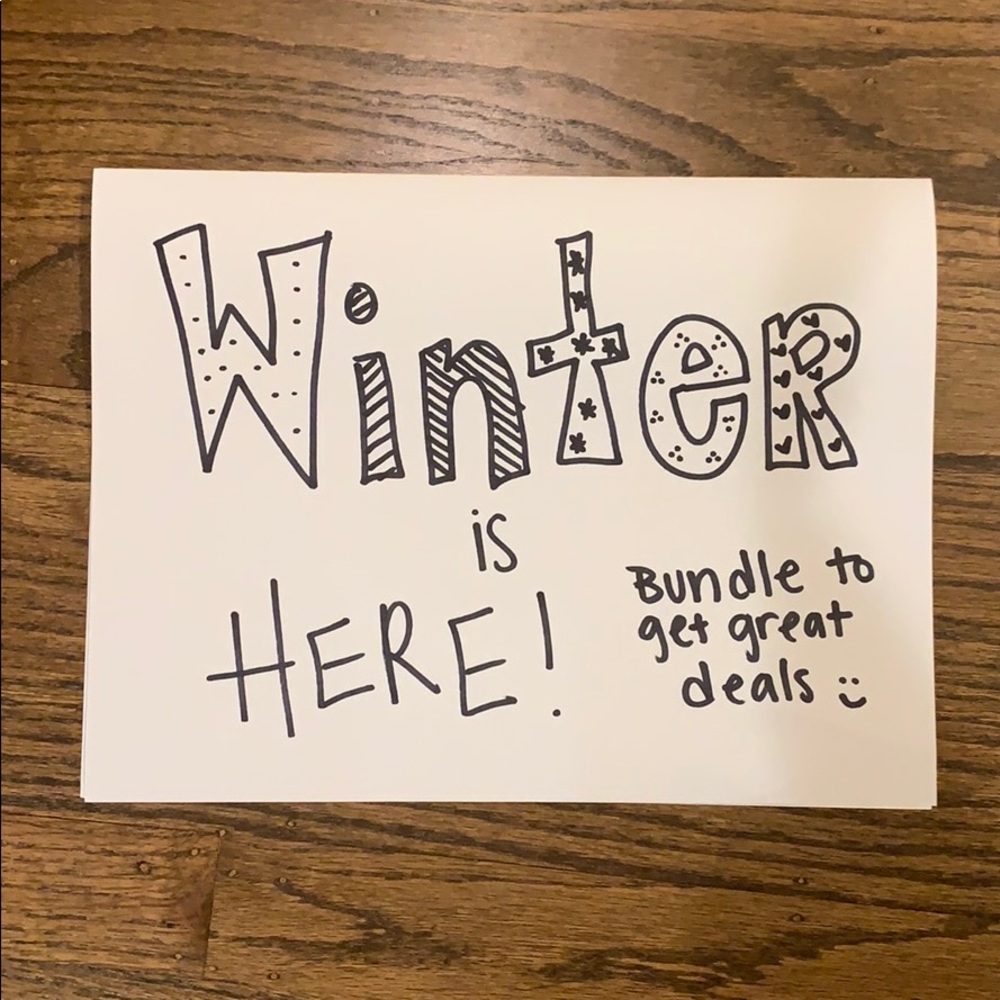 WinteR
is
HERE!
Bundle to
get great
deals :)